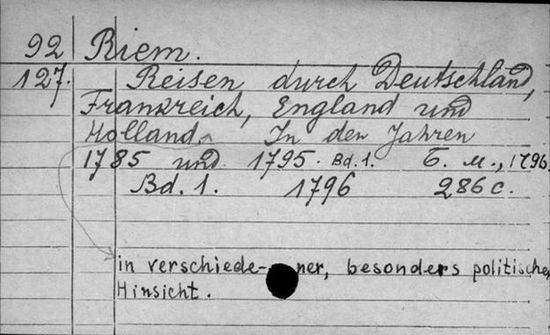 92 Riem.
127. Reisen durch Deutschland,
Frankreich, England und
Holland. In den Jahren
1785 und 1795. Bd. 1. Б. м., 1796.
Bd. 1. 1796 286 c.
in verschiede-ner, besonders politischer
Hinsicht.